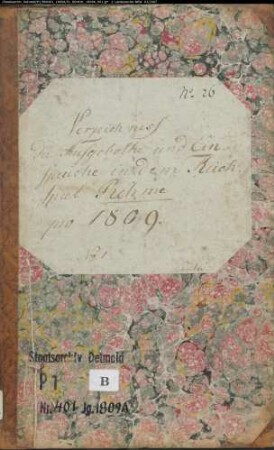 No 26
Verzeichniß
der Aufgebothe und Ein-
sprüche in dem Kirch-
spiel Rehme
pro 1809.
Staatsarchiv Detmold
P 1
B
Nr. 401 Jg. 1809 A